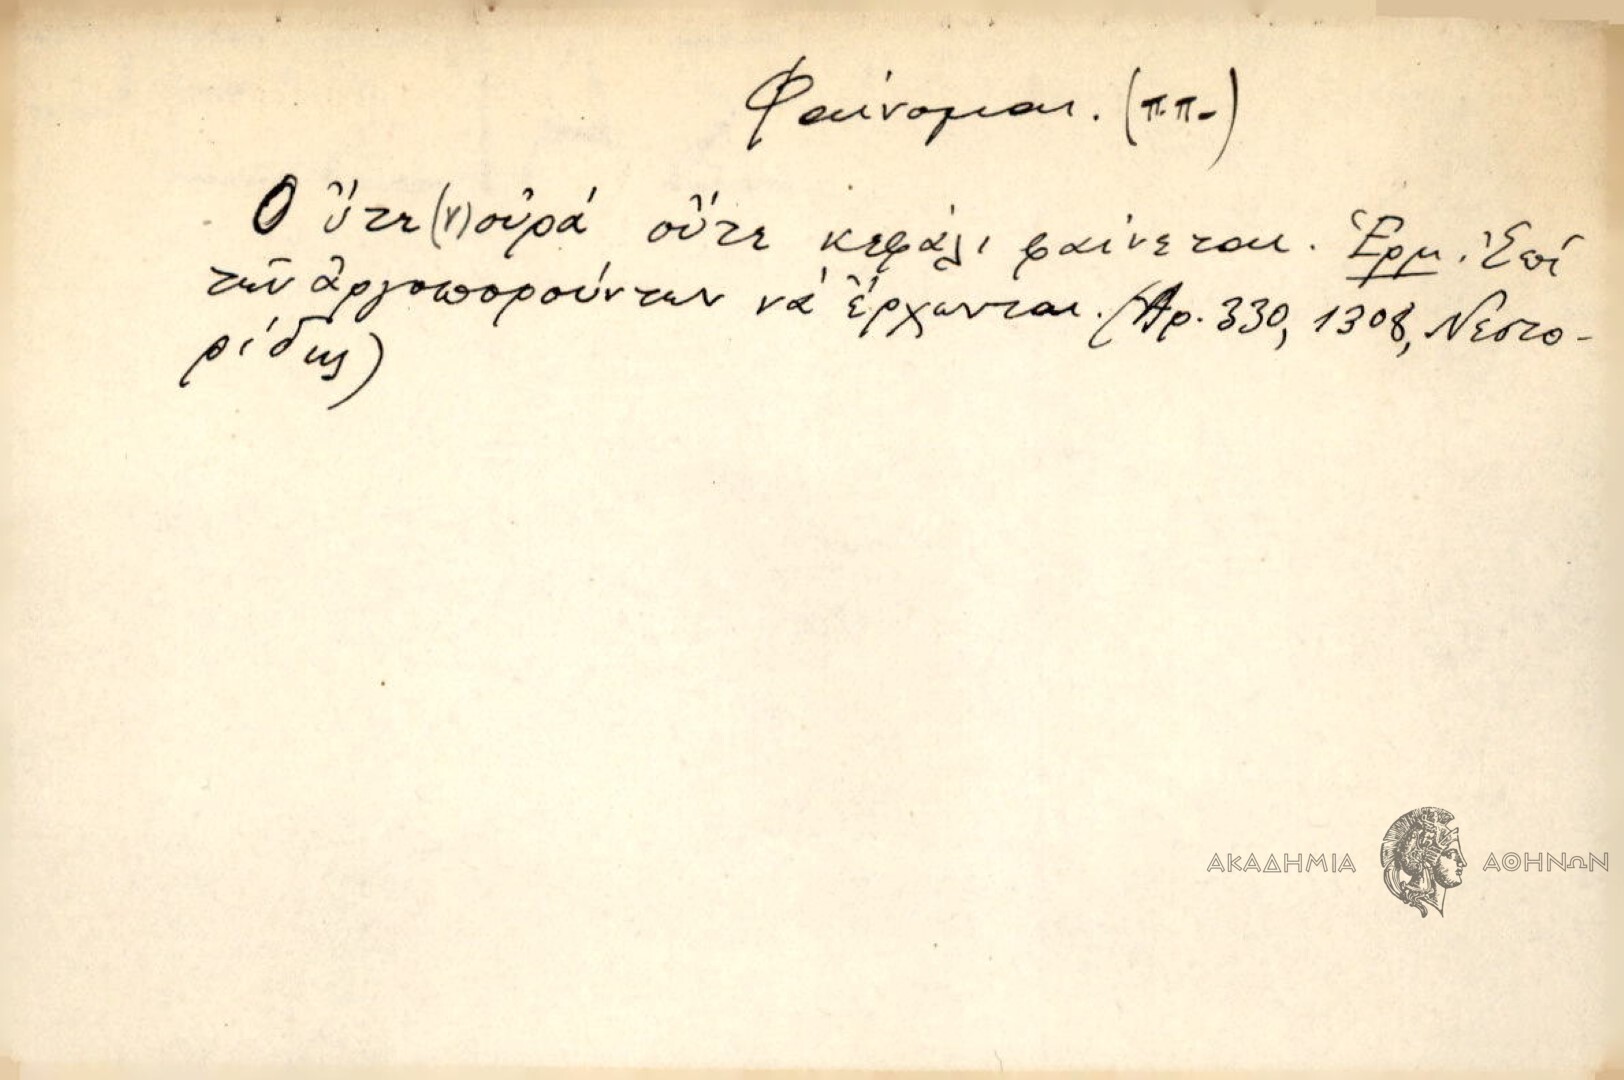 Φαίνομαι. (π.π.)
Οὔτε(ν)οὐρά οὔτε κεφάλι φαίνεται. Ἑρμ. Ἐπί
τῶν ἀργοπορούντων νά ἔρχωνται. (Ἀρ. 330, 1308, Νεστο-
ρίδης)
ΑΚΑΔΗΜΙΑ ΑΘΗΝΩΝ